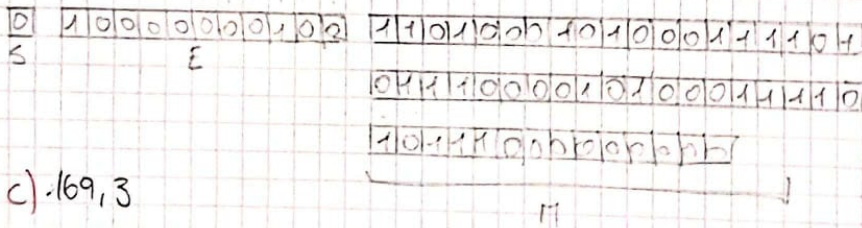 0 10000000100 1101000101000111101
S E
0111000010100011110
10111000000000
c) 169,3
M